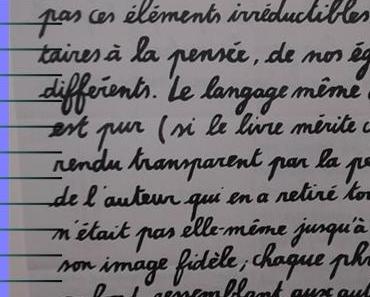 pas ces éléments irréductibles
taires à la pensée, de nos ég
différents. Le langage même
est pur (si le livre mérite c
rendu transparent par la pe
de l'auteur qui en a retiré to
n'était pas elle-même jusqu'à
son image fidèle; chaque phr
ressemblant aux aut